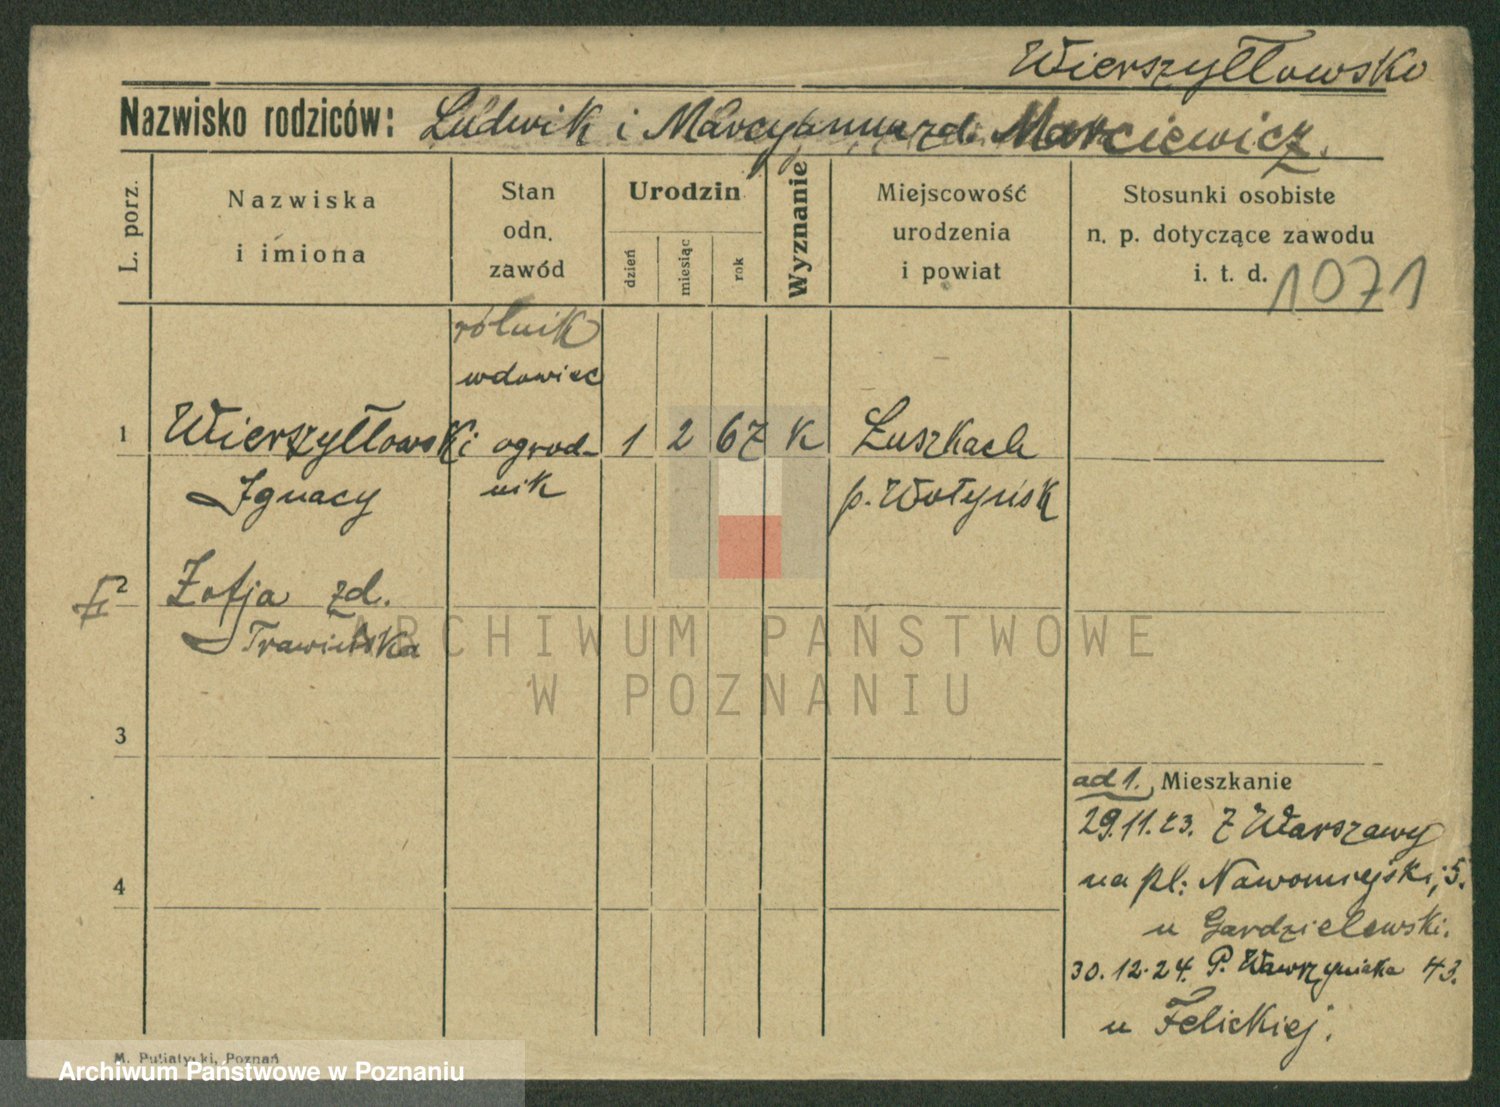 Wierszyłłowsko
Nazwisko rodziców: Ludwik i Marcyanna zd. Marciewicz.
L. porz.
Nazwiska
i imiona
Stan
odn.
zawód
Urodzin
dzień
miesiąc
rok
Wyznanie
Miejscowość
urodzenia
i powiat
Stosunki osobiste
n. p. dotyczące zawodu
i. t. d. 1071
rolnik
wdowiec
1 Wierszyłłowski ogrod- 1 2 67 K Łuszkach
Ignacy nik p. Wołyńsk
II 2 Zofja zd.
Trawińska
3
4
ad 1. Mieszkanie
29.11.23. z Warszawy
na pl: Nowomiejski, 5.
u Gardzielewski.
30.12.24. P. Wawrzyniaka 43.
u Felickiej.
M. Putiatycki, Poznań
ARCHIWUM PAŃSTWOWE
W POZNANIU
Archiwum Państwowe w Poznaniu